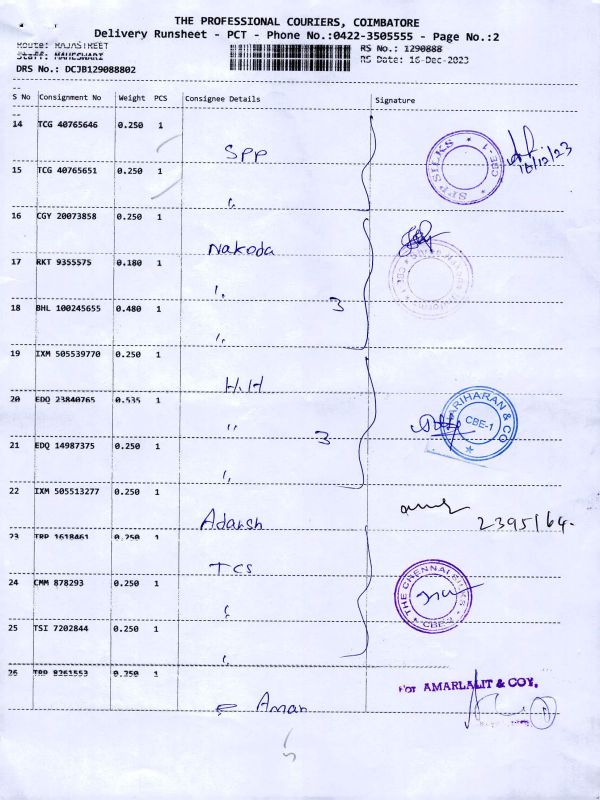 THE PROFESSIONAL COURIERS, COIMBATORE
Delivery Runsheet - PCT - Phone No.:0422-3505555 - Page No.:2
Route: RAJASTREET
Staff: MAHESWARI
DRS No.: DCJB129088802
RS No.: 1290888
RS Date: 16-Dec-2023
S No Consignment No Weight PCS Consignee Details Signature
14 TCG 40765646 0.250 1
SPP
SPP SILKS * CBE-1 *
16/12/23
15 TCG 40765651 0.250 1
16 CGY 20073858 0.250 1
Nakoda
17 RKT 9355575 0.180 1
3
18 BHL 100245655 0.480 1
19 IXM 505539770 0.250 1
H.H
20 EDQ 23840765 0.535 1
3
HARIHARAN & CO
CBE-1
21 EDQ 14987375 0.250 1
22 IXM 505513277 0.250 1
Adarsh
2395164-
23 TRP 1618461 0.250 1
TCS
24 CMM 878293 0.250 1
THE CHENNAI SILKS
CBE-2
25 TSI 7202844 0.250 1
26 TRP 8261553 0.250 1
Aman
For AMARLALIT & COY.